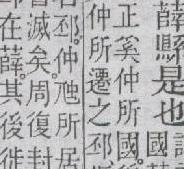 薛縣是也
國
正奚仲所國後
仲所遷之邳
邳仲虺所居
滅矣周復封
在薛其後徙